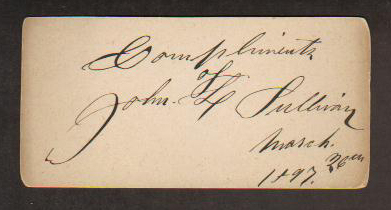 Compliments
of
John L Sullivan
March. 26th
1897.